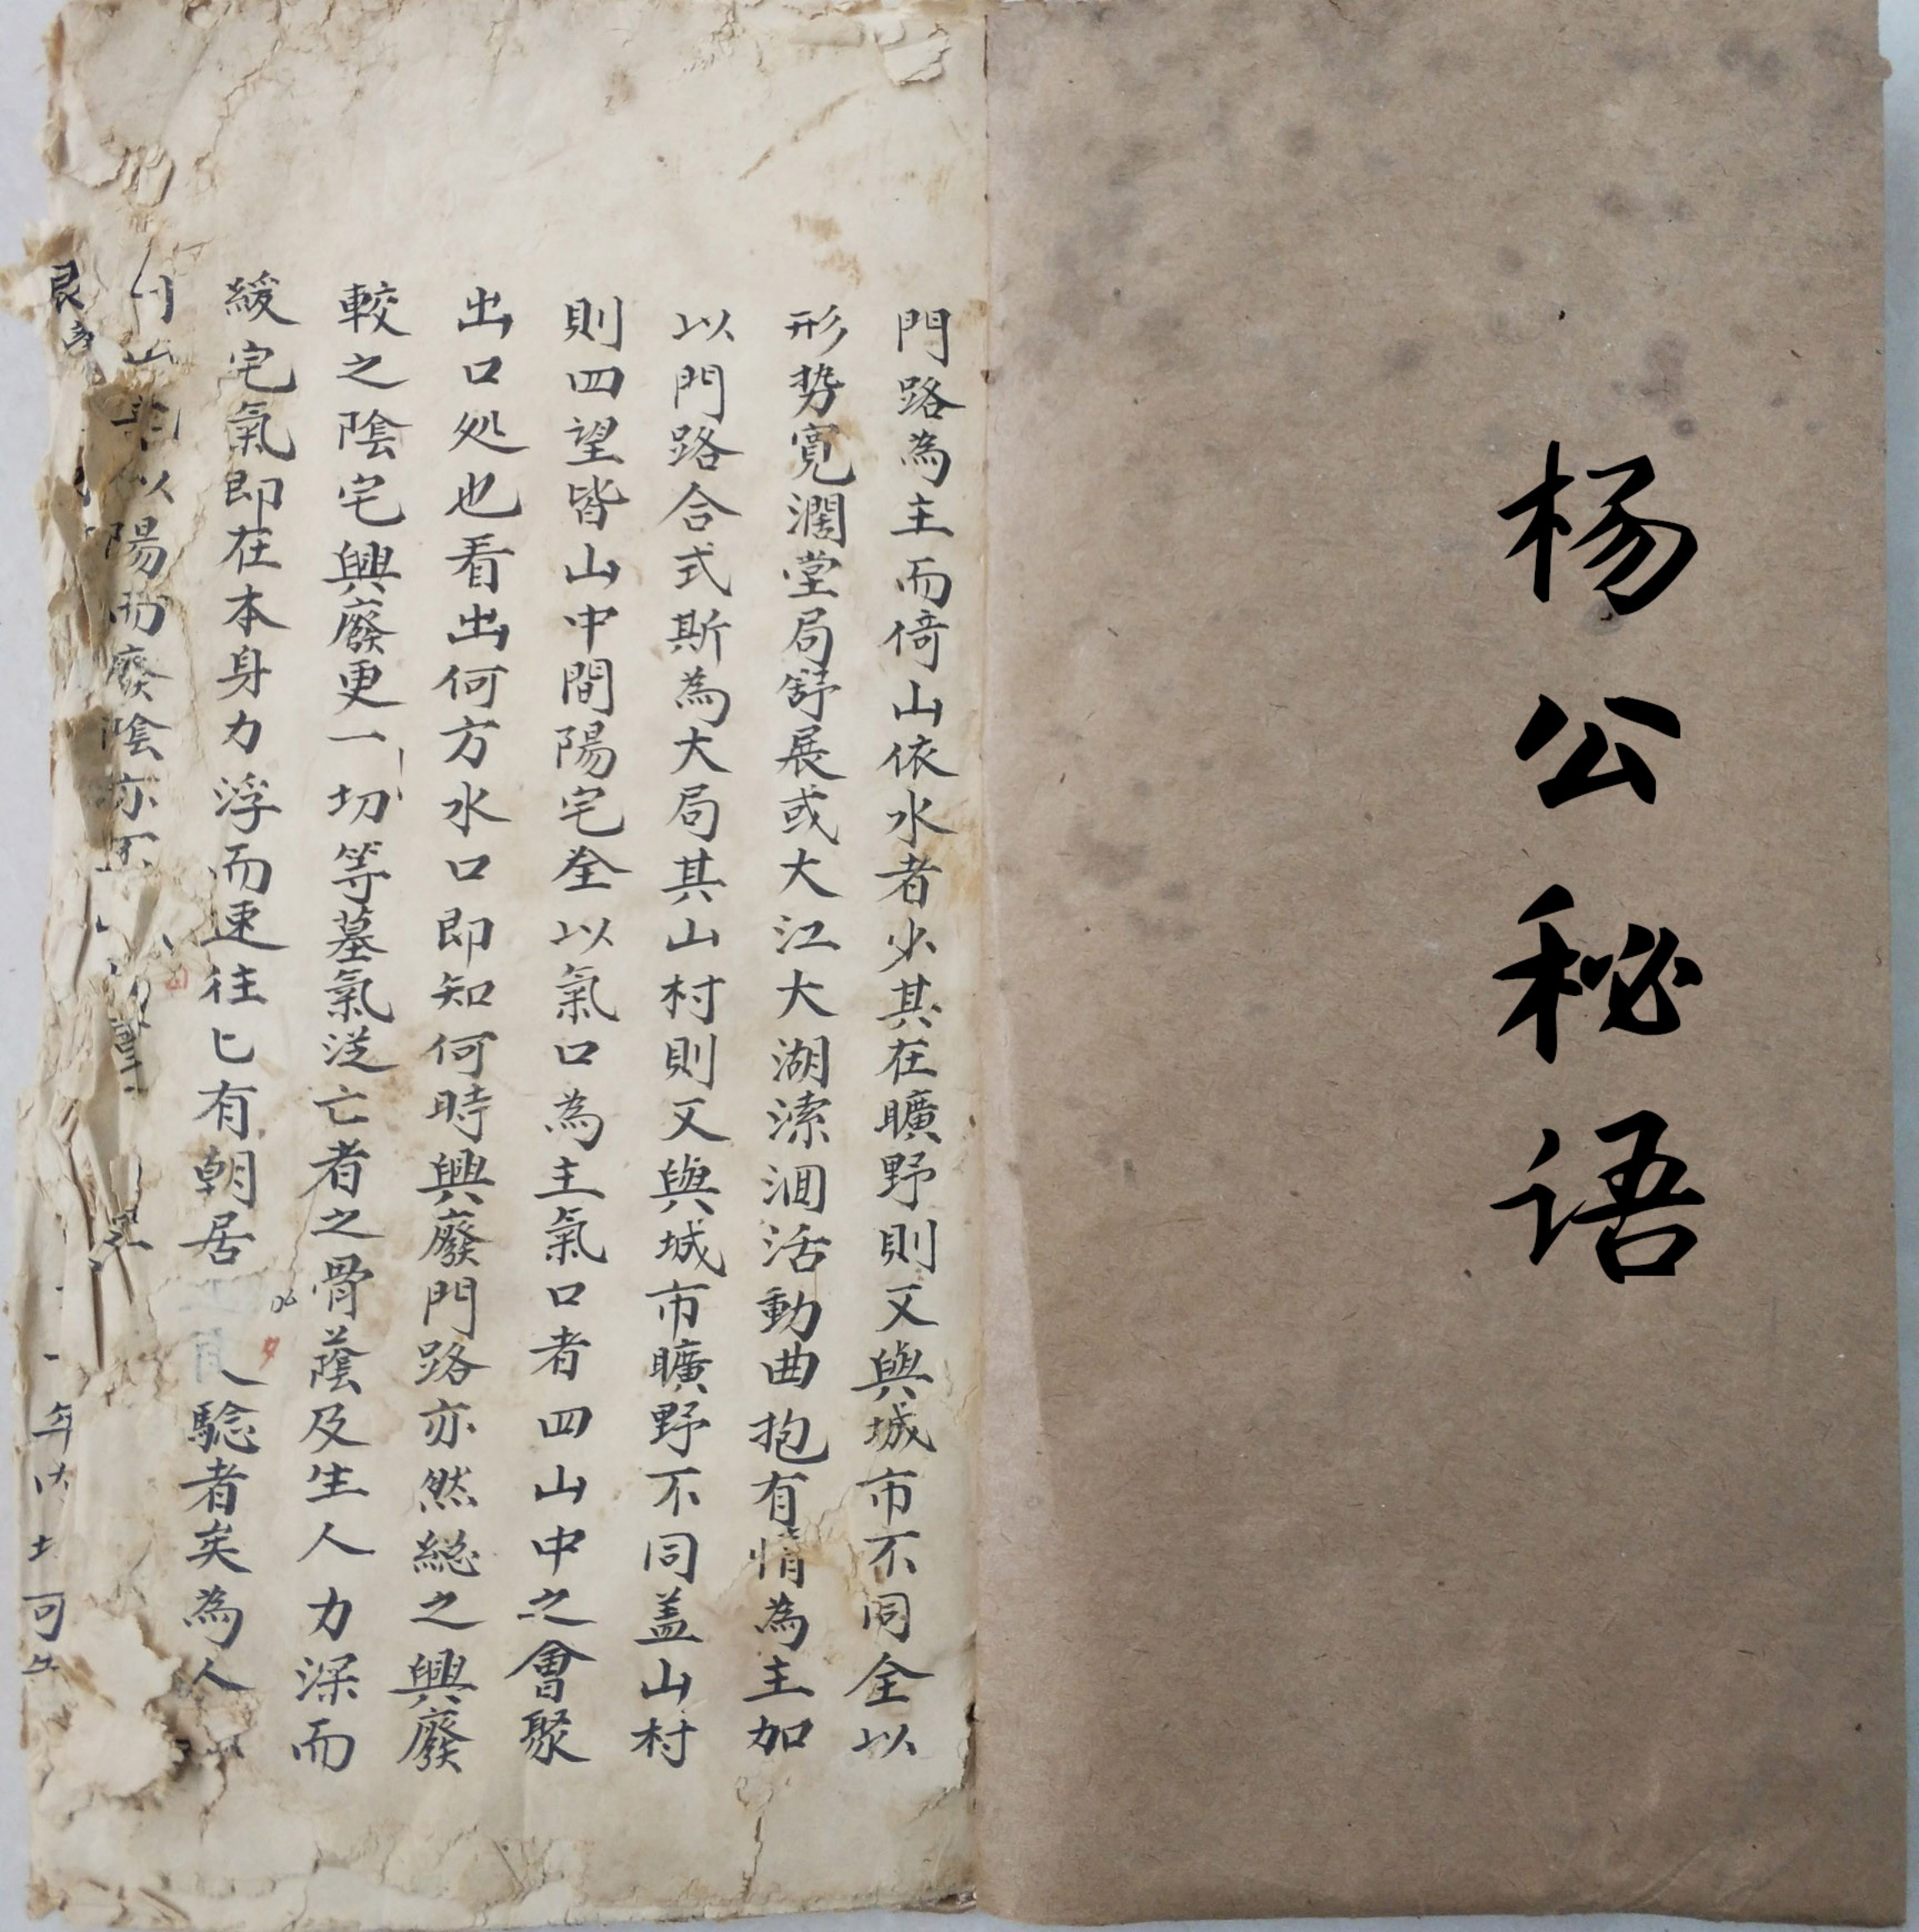 杨公秘语
門路為主而倚山依水者少其在曠野則又與城市不同全以
形势寬濶堂局舒展或大江大湖潆洄活動曲抱有情為主加
以門路合式斯為大局其山村則又與城市曠野不同盖山村
則四望皆山中間陽宅全以氣口為主氣口者四山中之會聚
出口处也看出何方水口即知何時興廢門路亦然総之興廢
較之陰宅興廢更一切等墓氣送亡者之骨蔭及生人力深而
緩宅氣即在本身力浮而速往匕有朝居騐者矣為人
以陽而廢陰亦
年 可